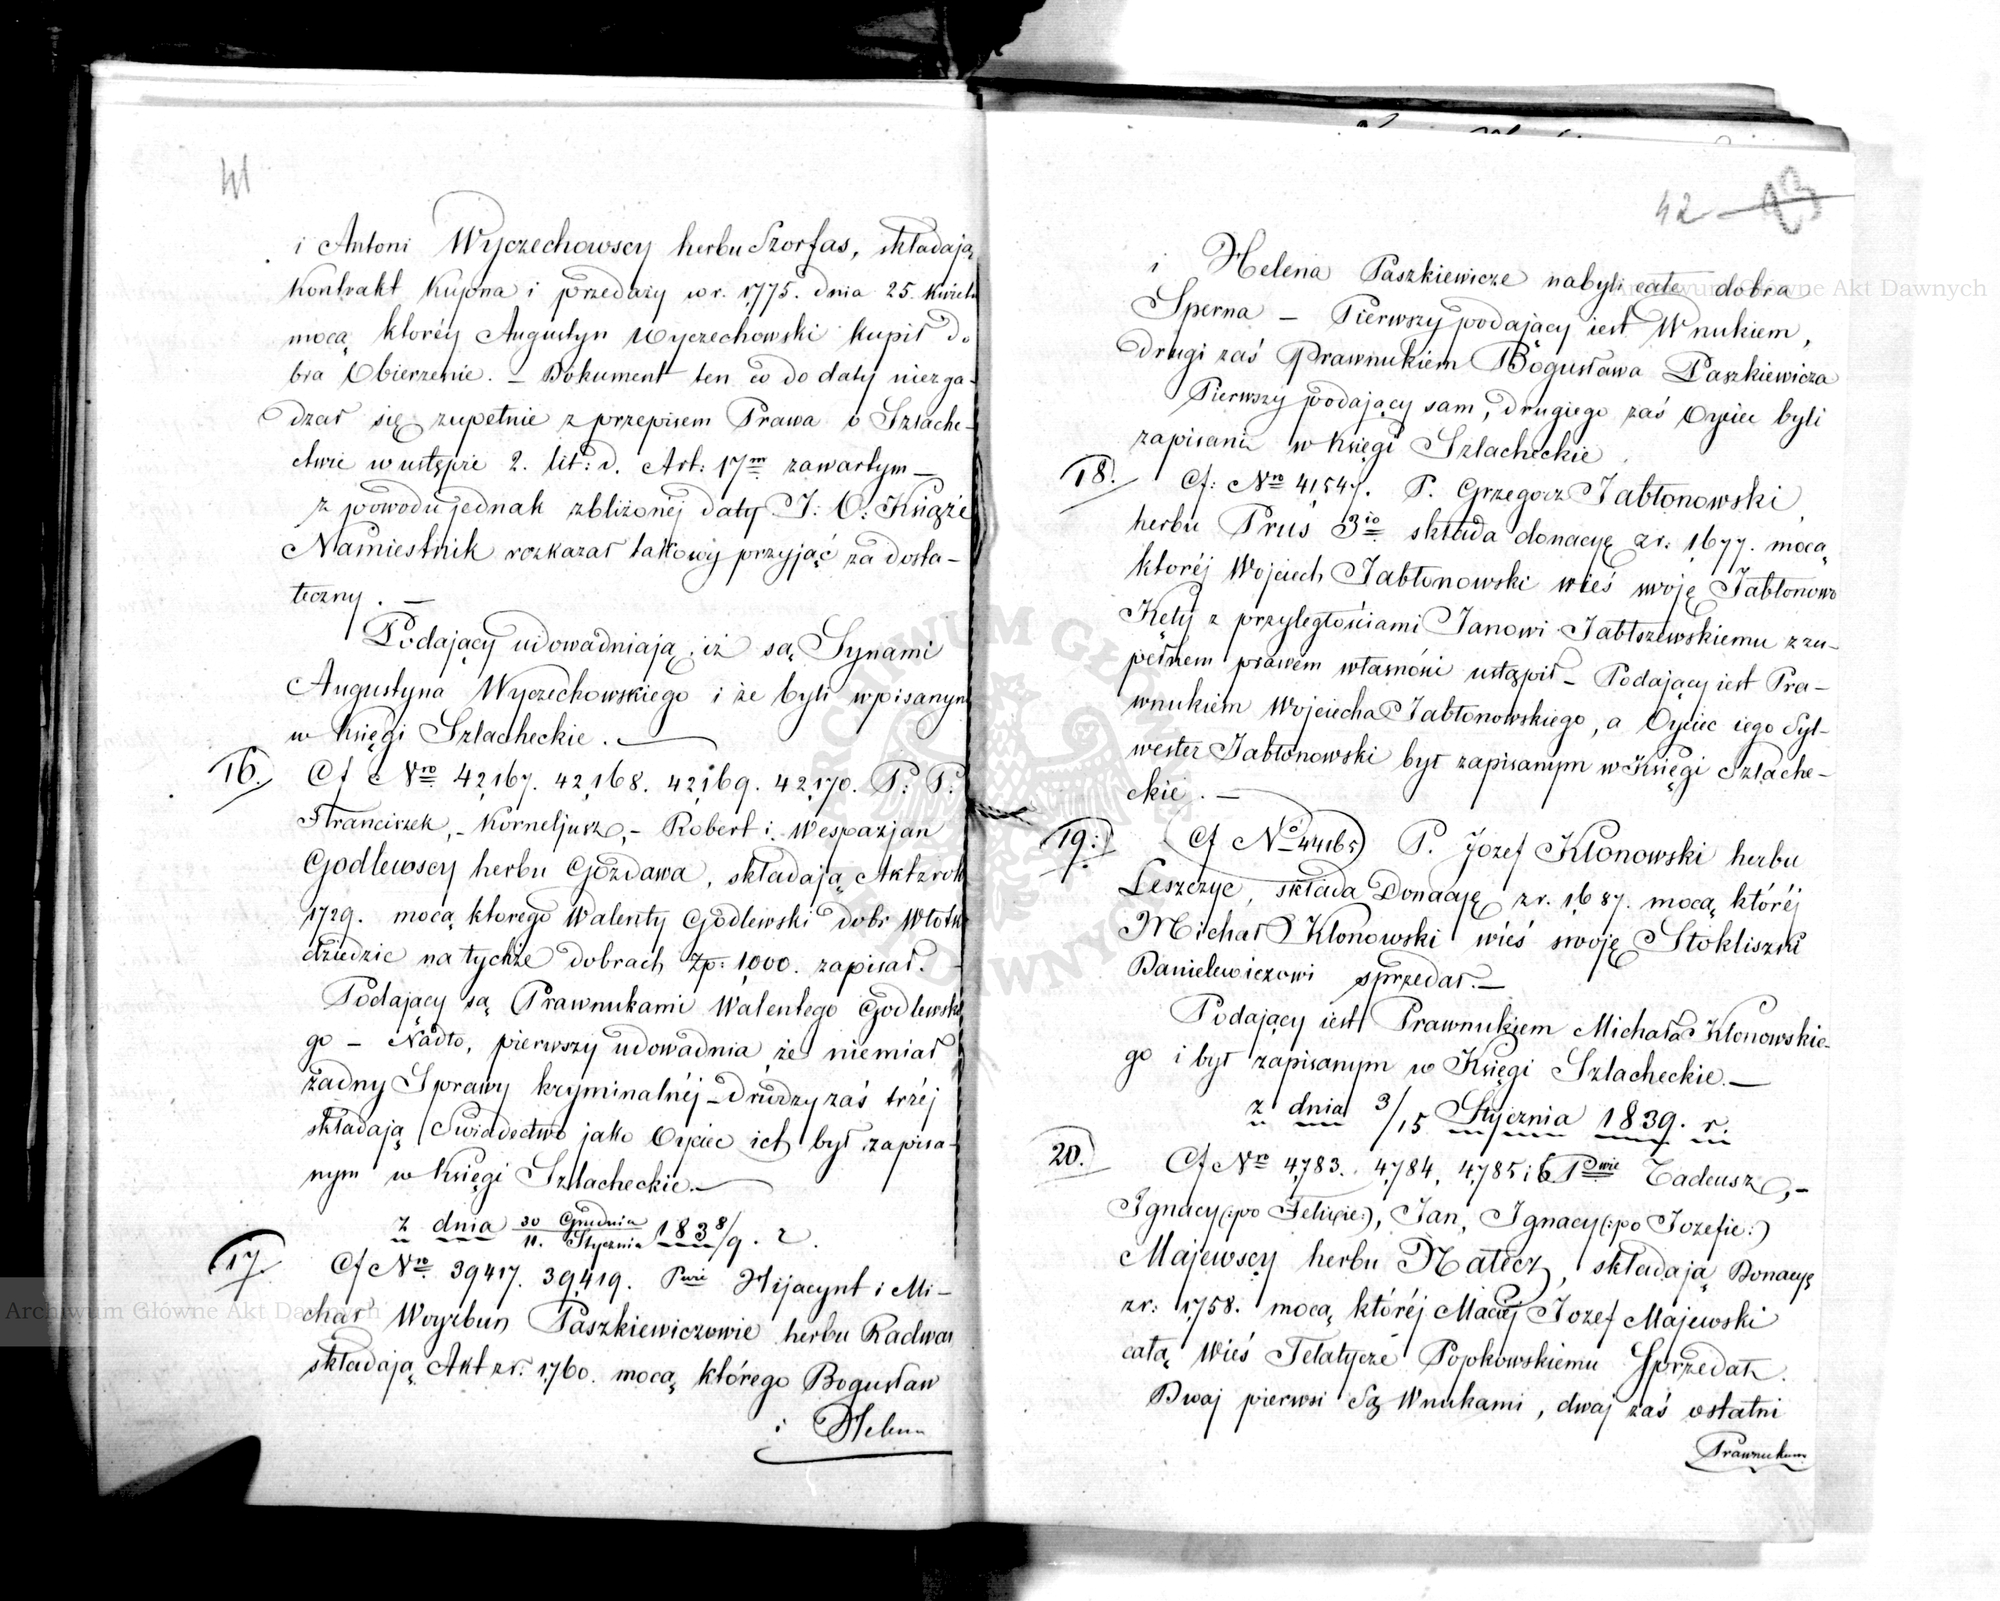 41
i Antoni Wyczechowscy herbu Szorfas, składają
Kontrakt Kupna i przedaży w r. 1775. dnia 25. Kwietn
mocą któréy Augustyn Wyczechowski kupił do
bra Obierzenie. — Dokument ten co do daty niezga-
dzał się zupełnie z przepisem Prawa o Szlache-
ctwie w ustępie 2. lit: d. Art: 17m zawartym —
z powodu jednak zbliżonéj daty J: O: Książe
Namiestnik rozkazał takowy przyjąć za dosta-
teczny. —
Podający udowadniają, iż są Synami
Augustyna Wyczechowskiego i że byli wpisanym
w Księgi Szlacheckie. —
16. Cf Nro 42,167. 42,168. 42,169. 42,170. P: P.
Franciszek, - Korneljusz, - Robert i Wespazjan
Godlewscy herbu Gozdawa, składają Akt z rok
1729. mocą ktorego Walenty Godlewski dobr
dziedzic na tychże dobrach Zp: 1,000. zapisał. —
Podający są Prawnukami Walentego Godlewskie
go — Nadto, pierwszy udowadnia że niemiał
żadny Sprawy kryminalnéj — drudzy zaś trzéj
składają Swiadectwo jako Oyciec ich był zapisa-
nym w Księgi Szlacheckie. —
z dnia 30 Grudnia / 11. Stycznia 1838/9. r.
17. Cf Nro 39417. 39,419. Pwie Hijacynt i Mi-
chał Woyzbun Paszkiewiczowie herbu Radwan
składają Akt z r: 1,760. mocą którego Bogusław
i Helena
42 43
i Helena Paszkiewicze nabyli całe dobra
Sperna — Pierwszy podający iest Wnukiem,
drugi zaś Prawnukiem Bogusława Paszkiewicza
Pierwszy podający sam, drugiego zaś Oyciec byli
zapisani w Księgi Szlacheckie.
18. Cf: Nro 41,547. P. Grzegorz Jabłonowski
herbu Prus 3io składa donacyę z r: 1,677. mocą
któréj Wojciech Jabłonowski wieś swoję Jabłonowo
Kęty z przyległościami Janowi Jabłszewskiemu z zu-
pełnem prawem własności ustąpił — Podający iest Pra-
wnukiem Wojciecha Jabłonowskiego, a Oyciec iego Syl-
wester Jabłonowski był zapisanym w Księgi Szlache-
ckie. —
19. Cf No 44165) P. Jozef Kłonowski herbu
Leszczyc, składa Donacyę z r. 1,687. mocą któréj
Michał Kłonowski wieś swoję Stokliszki
Danielewiczowi sprzedał. —
Podający iest Prawnukiem Michała Kłonowskie-
go i był zapisanym w Księgi Szlacheckie. —
z dnia 3/15 Stycznia 1839. r.
20. Cf Nro 4,783. 4,784, 4,785 i 6 Pwie Tadeusz, -
Ignacy (: po Felixie:), Jan, Ignacy (: po Jozefie:)
Majewscy herbu Nałęcz, składają Donacyę
z r: 1,758. mocą któréj Maciej Jozef Majewski
całą Wieś Telatycze Popkowskiemu Sprzedał.
Dwaj pierwsi Są Wnukami, dwaj zaś ostatni
Prawnukam
Archiwum Główne Akt Dawnych
Archiwum Główne Akt Dawnych
ARCHIWUM GŁÓWNE AKT DAWNYCH